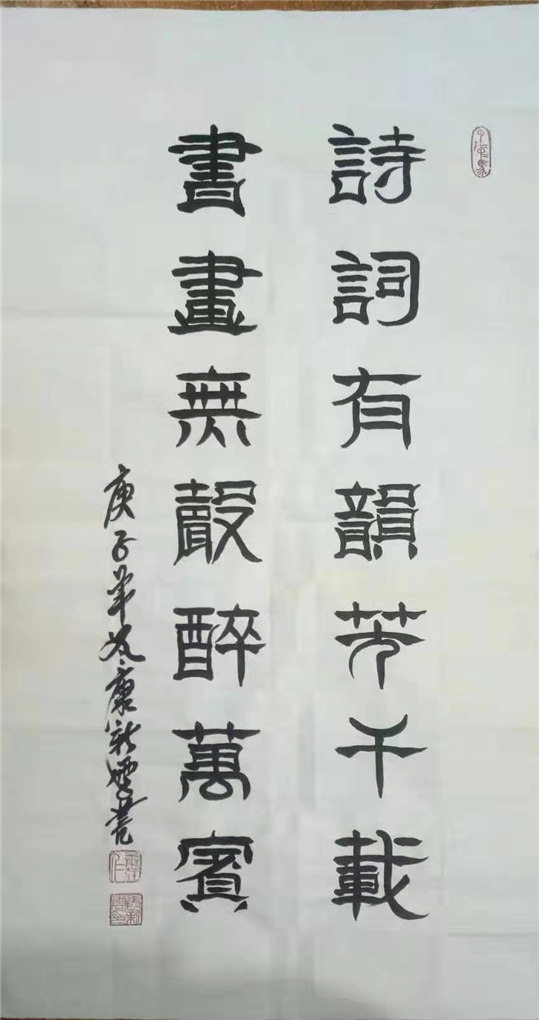 詩詞有韻芳千載
書畫無聲醉萬賓
庚子年冬康新